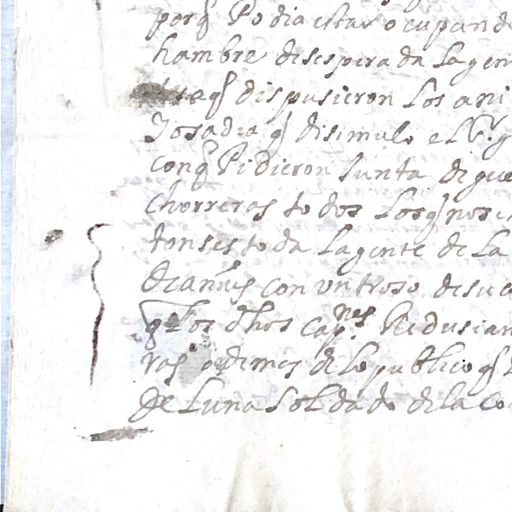 porq̃ Podia estar ocupand
hambre desesperada la gen
traq̃ dispusieron los ani
Josadia q̃ disimulo el
conq̃ Pidieron Junta de gue
chorreras todos los q̃ nos
tonses toda la gente de La
con un troso de su
q̃ los d̃hos cap.nes Redusian
ras ademas de lo publico q̃
de Luna Soldado de la co